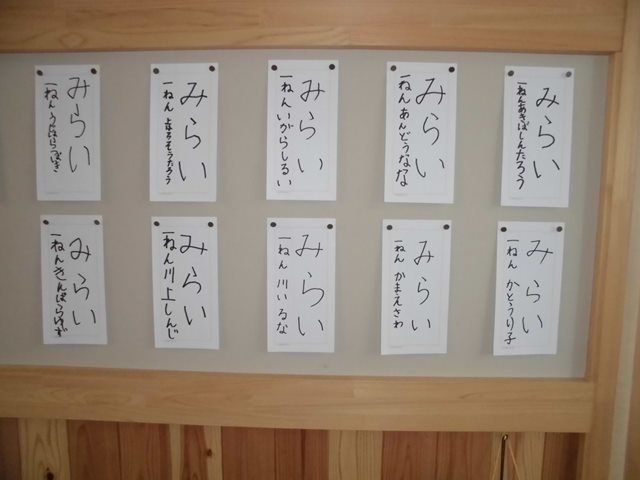 みらい
一ねんあきばしんたろう
みらい
一ねんあんどうなな
みらい
一ねんいがらしるい
みらい
一ねん
みらい
一ねん
みらい
一ねんかとうり子
みらい
一ねんかまえさわ
みらい
一ねん川いるな
みらい
一ねん川上しんじ
みらい
一ねんきんばらゆず